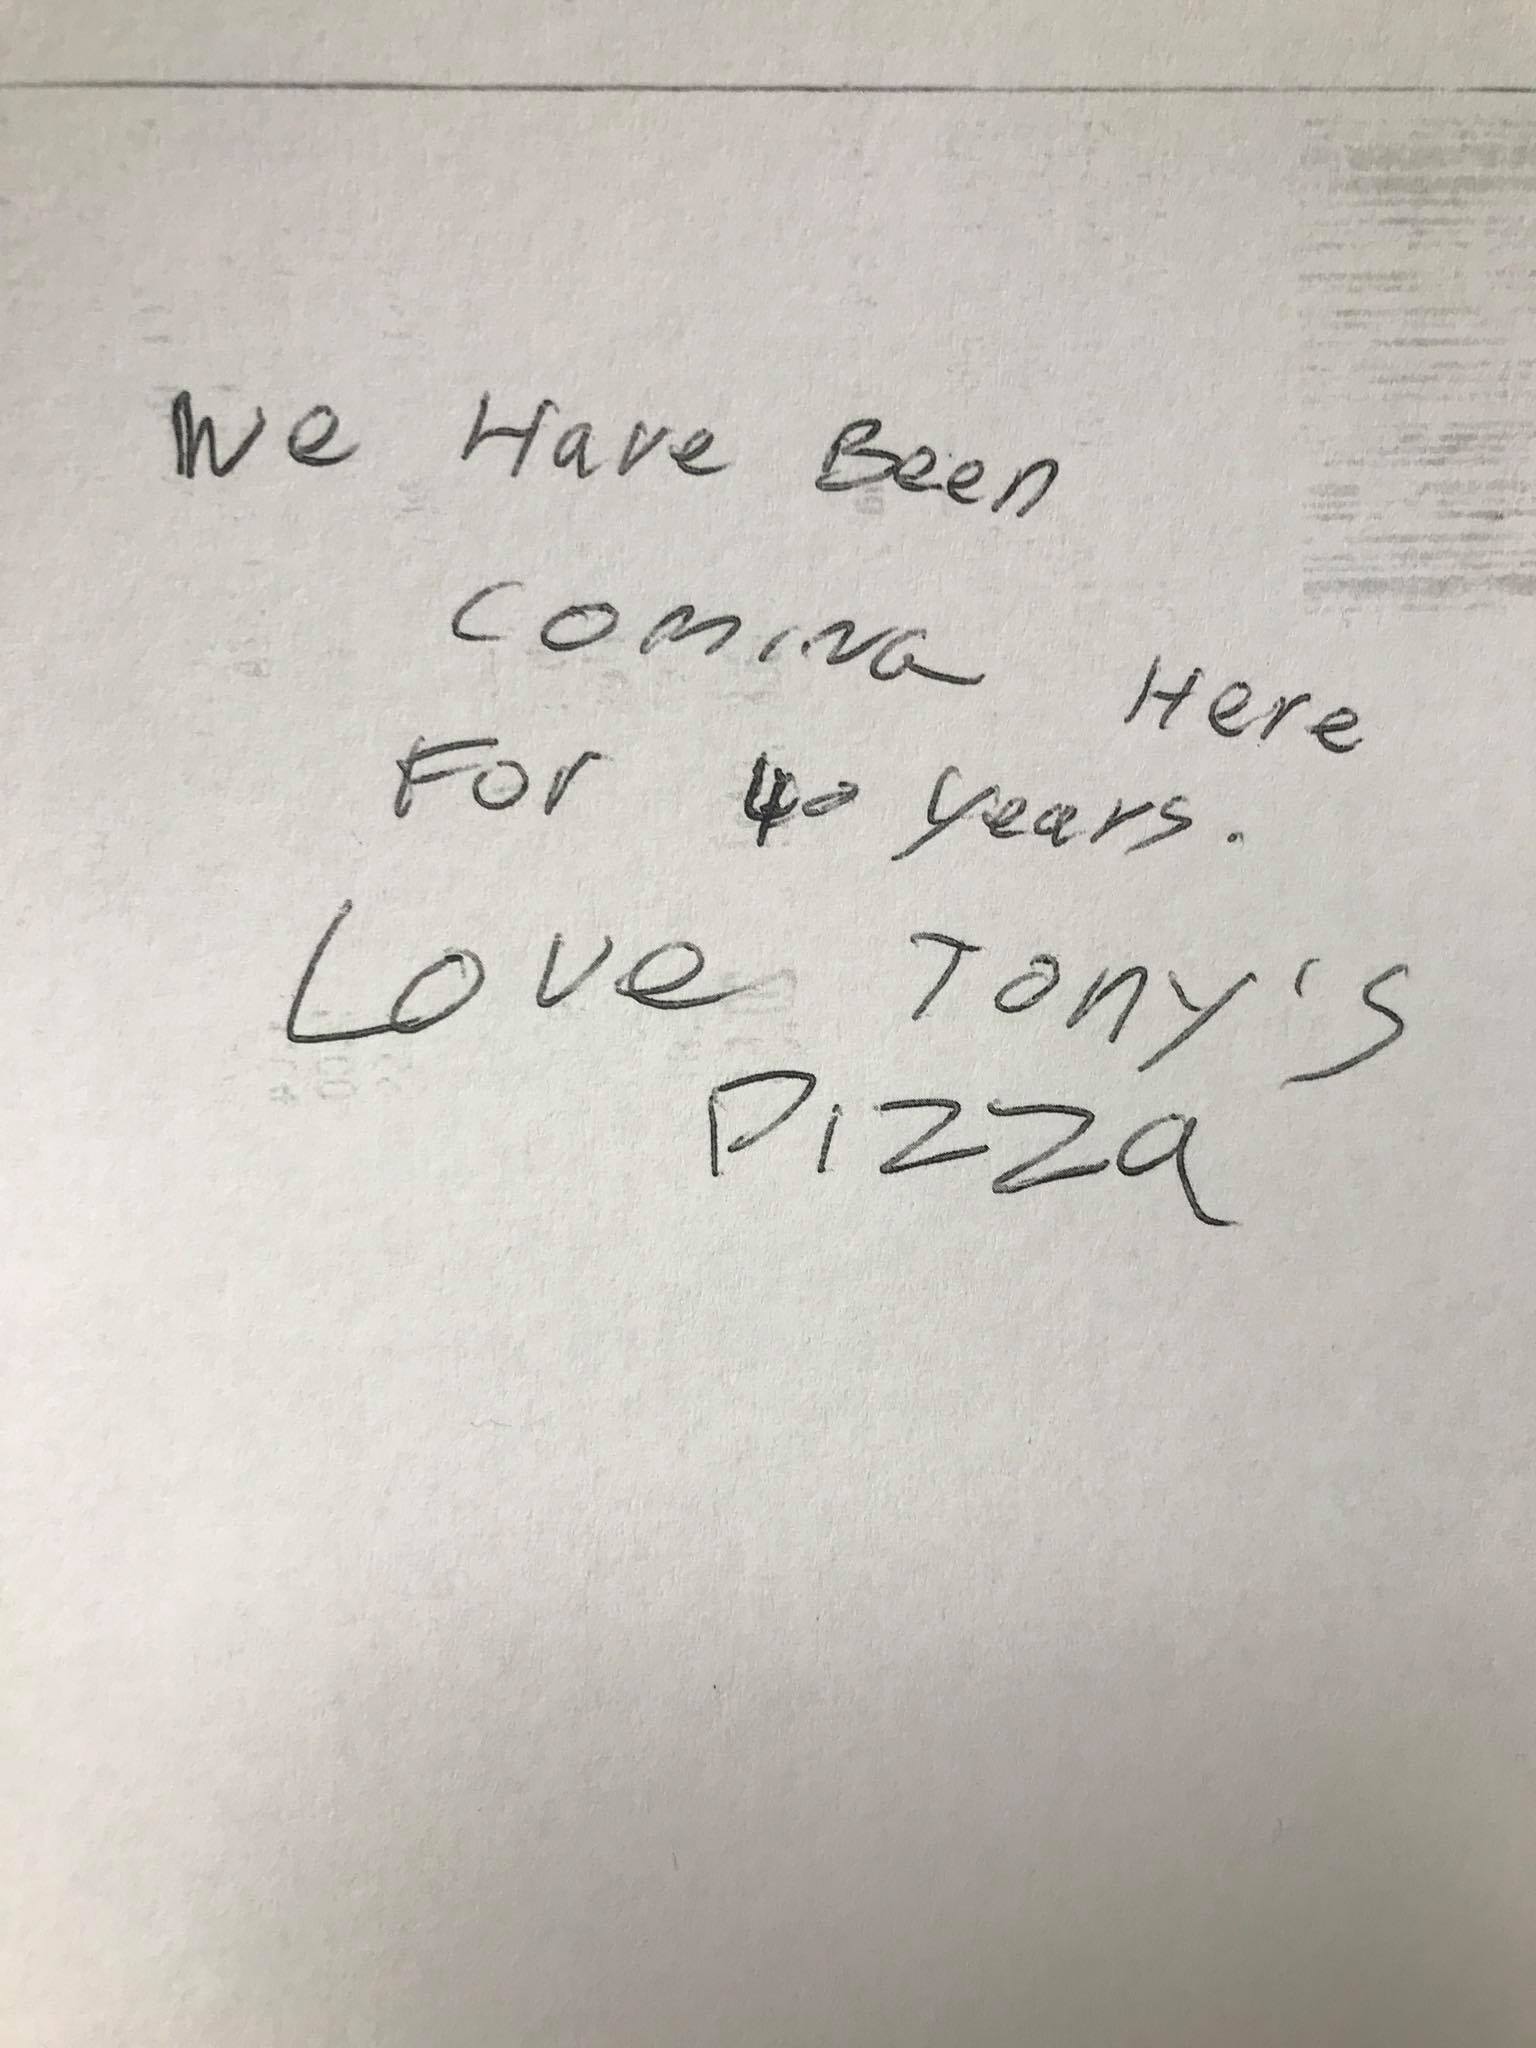 We Have Been
Coming Here
For 40 years.
Love Tony's
Pizza